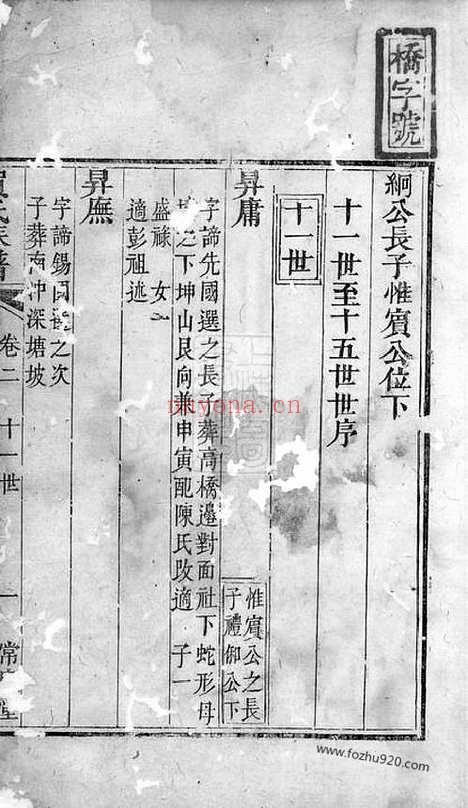 橋字號
綗公長子惟賓公位下
十一世至十五世世序
十一世
昇庸
惟賓公之長
子禮御公下
字諦先國選之長子葬高橋邊對面社下蛇形母
之下坤山艮向兼申寅配陳氏改適 子一
盛祿 女一
適彭祖述
昇廡
字諦錫國 之次
子葬 冲深塘坡
氏族譜 卷二 十一世 一 常 堂
nayona.cn
www.fozhu920.com